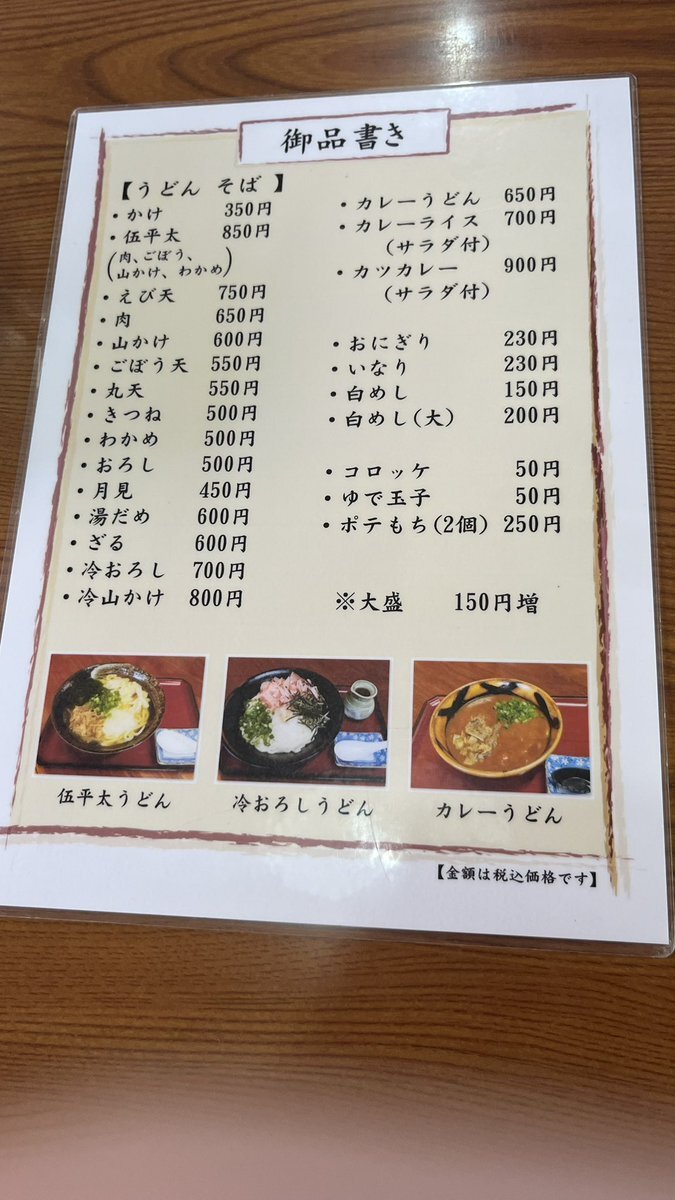 御品書き
【うどん そば】
・かけ 350円
・伍平太 850円
(肉、ごぼう、
山かけ、わかめ)
・えび天 750円
・肉 650円
・山かけ 600円
・ごぼう天 550円
・丸天 550円
・きつね 500円
・わかめ 500円
・おろし 500円
・月見 450円
・湯だめ 600円
・ざる 600円
・冷おろし 700円
・冷山かけ 800円
・カレーうどん 650円
・カレーライス 700円
(サラダ付)
・カツカレー 900円
(サラダ付)
・おにぎり 230円
・いなり 230円
・白めし 150円
・白めし(大) 200円
・コロッケ 50円
・ゆで玉子 50円
・ポテもち(2個) 250円
※大盛 150円増
伍平太うどん
冷おろしうどん
カレーうどん
【金額は税込価格です】